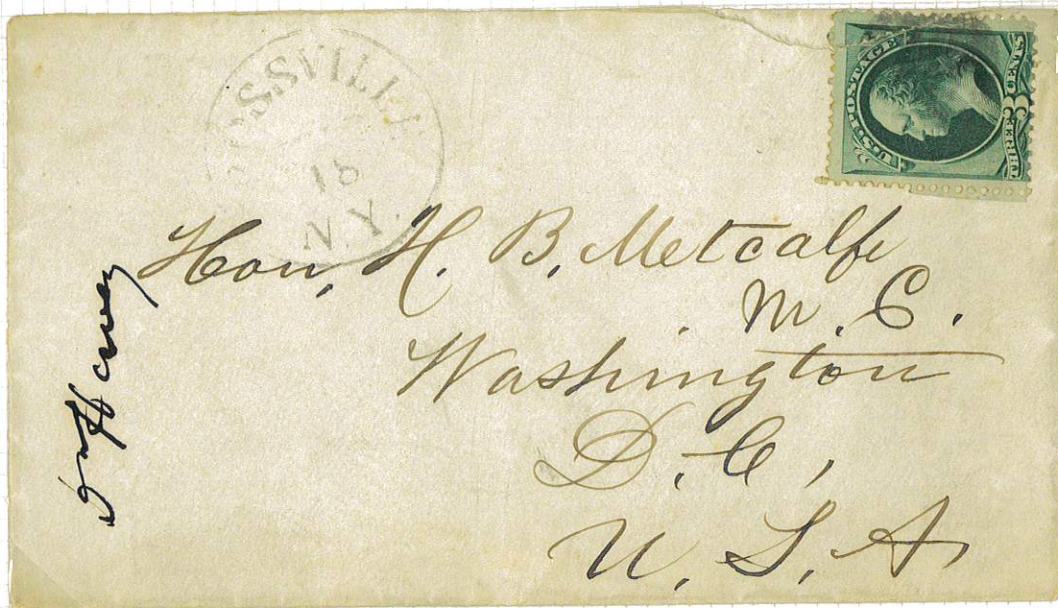 ROSSVILLE
18
N.Y.
U.S. POSTAGE
THREE 3 CENTS
Hon, H. B. Metcalfe
M. C.
Washington
D. C,
U. S. A